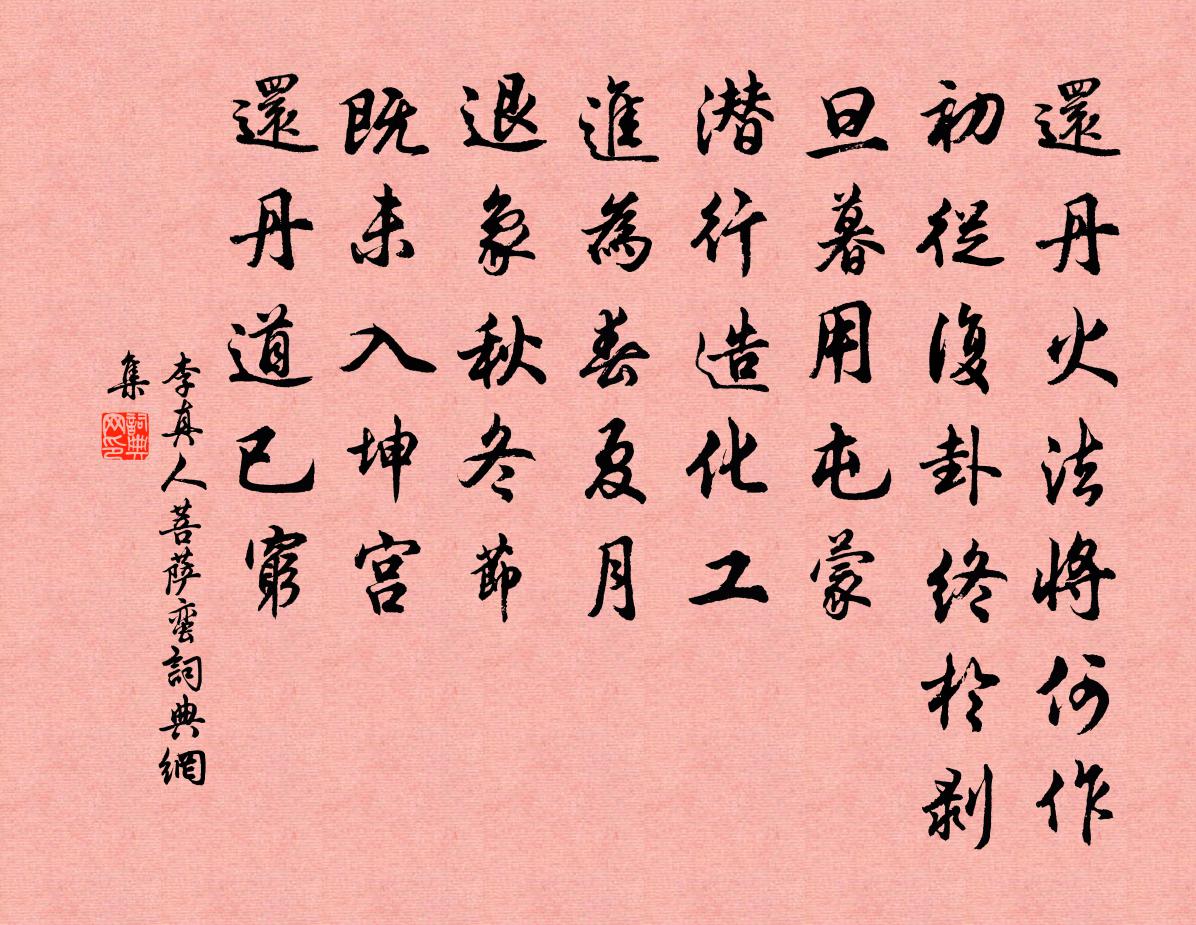 還丹火法將何作
初從復卦終於剝
旦暮用屯蒙
潜行造化工
進為春夏月
退象秋冬節
既未入坤宮
還丹道已窮
李真人菩薩蠻詞典網
集
詞典
网印